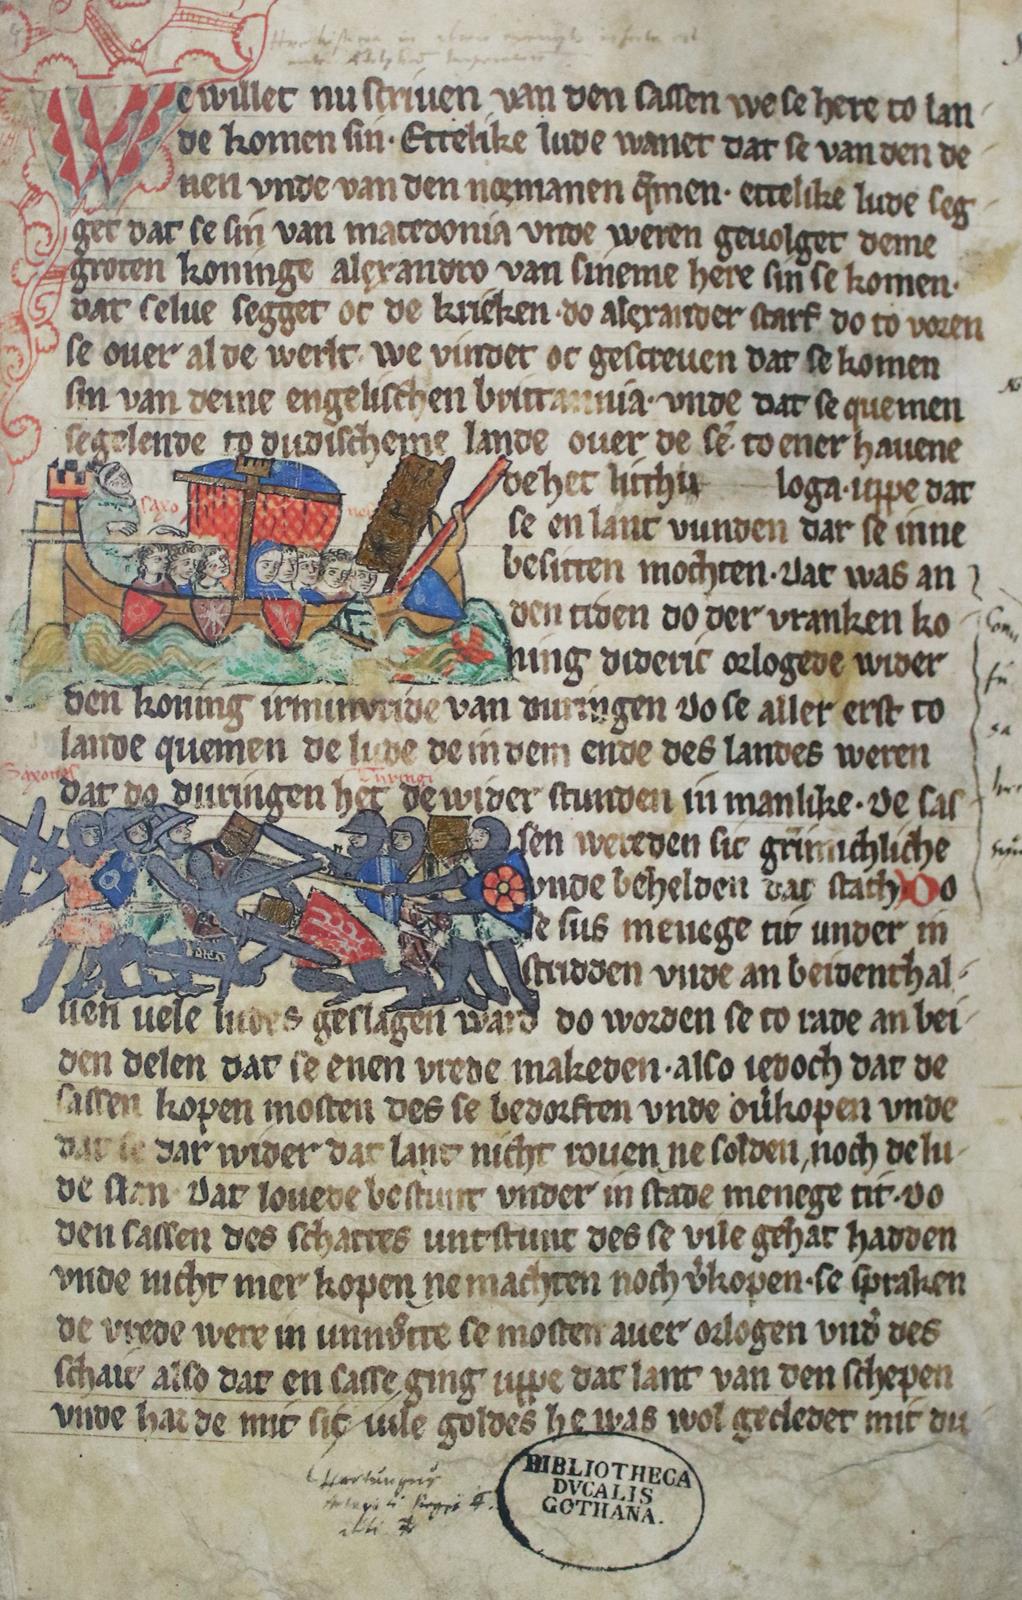 We willet nu scriuen van den sassen we se here to lan
de komen sin· Ettelike lude wanet dat se van den de
nen vnde van den normanen q̄men· ettelike lude seg
get dat se sin van macedonia vnde weren geuolget deme
groten koninge alexandro van sineme here sin se komen·
dat selue segget oc de krieken· do alexander starf do to voren
se ouer al de werlt· we vindet oc gescreuen dat se komen
sin van deme engelischen brittannia· vnde dat se quemen
segelende to dudischeme lande ouer de sē to ener hauene
saxo
de het hithu loga· uppe dat
se en lant vunden dar se inne
besitten mochten· Dat was an
den tiden do der vranken ko
ning dideric orlogede wider
den koning irminvride van duringen Do se aller erst to
lande quemen de lude de in dem ende des landes weren
Saxones Turingi
dat do duringen het de wider stunden in manlike· De sas
sen wereden sic grimichliche
vnde behelden dat stath Do
se sus menege tit under in
stridden vnde an beidenthal
uen uele ludes geslagen ward do worden se to rade an bei
den delen dat se enen vrede makeden· also iedoch dat de
sassen kopen mosten des se bedorften vnde uͦkopen vnde
dat se dar wider dat lant nicht rouen ne solden, noch de lu
de slan· Dat louede bestunt vnder in stade menege tit· Do
den sassen des schattes untstunt des se vile gehat hadden
vnde nicht mer kopen ne machten noch v̄kopen· se spraken
de vrede were in unnutte se mosten auer orlogen vnd des
schach also dat en sasse ging uppe dat lant van den schepen
vnde hadde mit sic uile goldes he was wol gecledet mit du
BIBLIOTHECA
DVCALIS
GOTHANA.